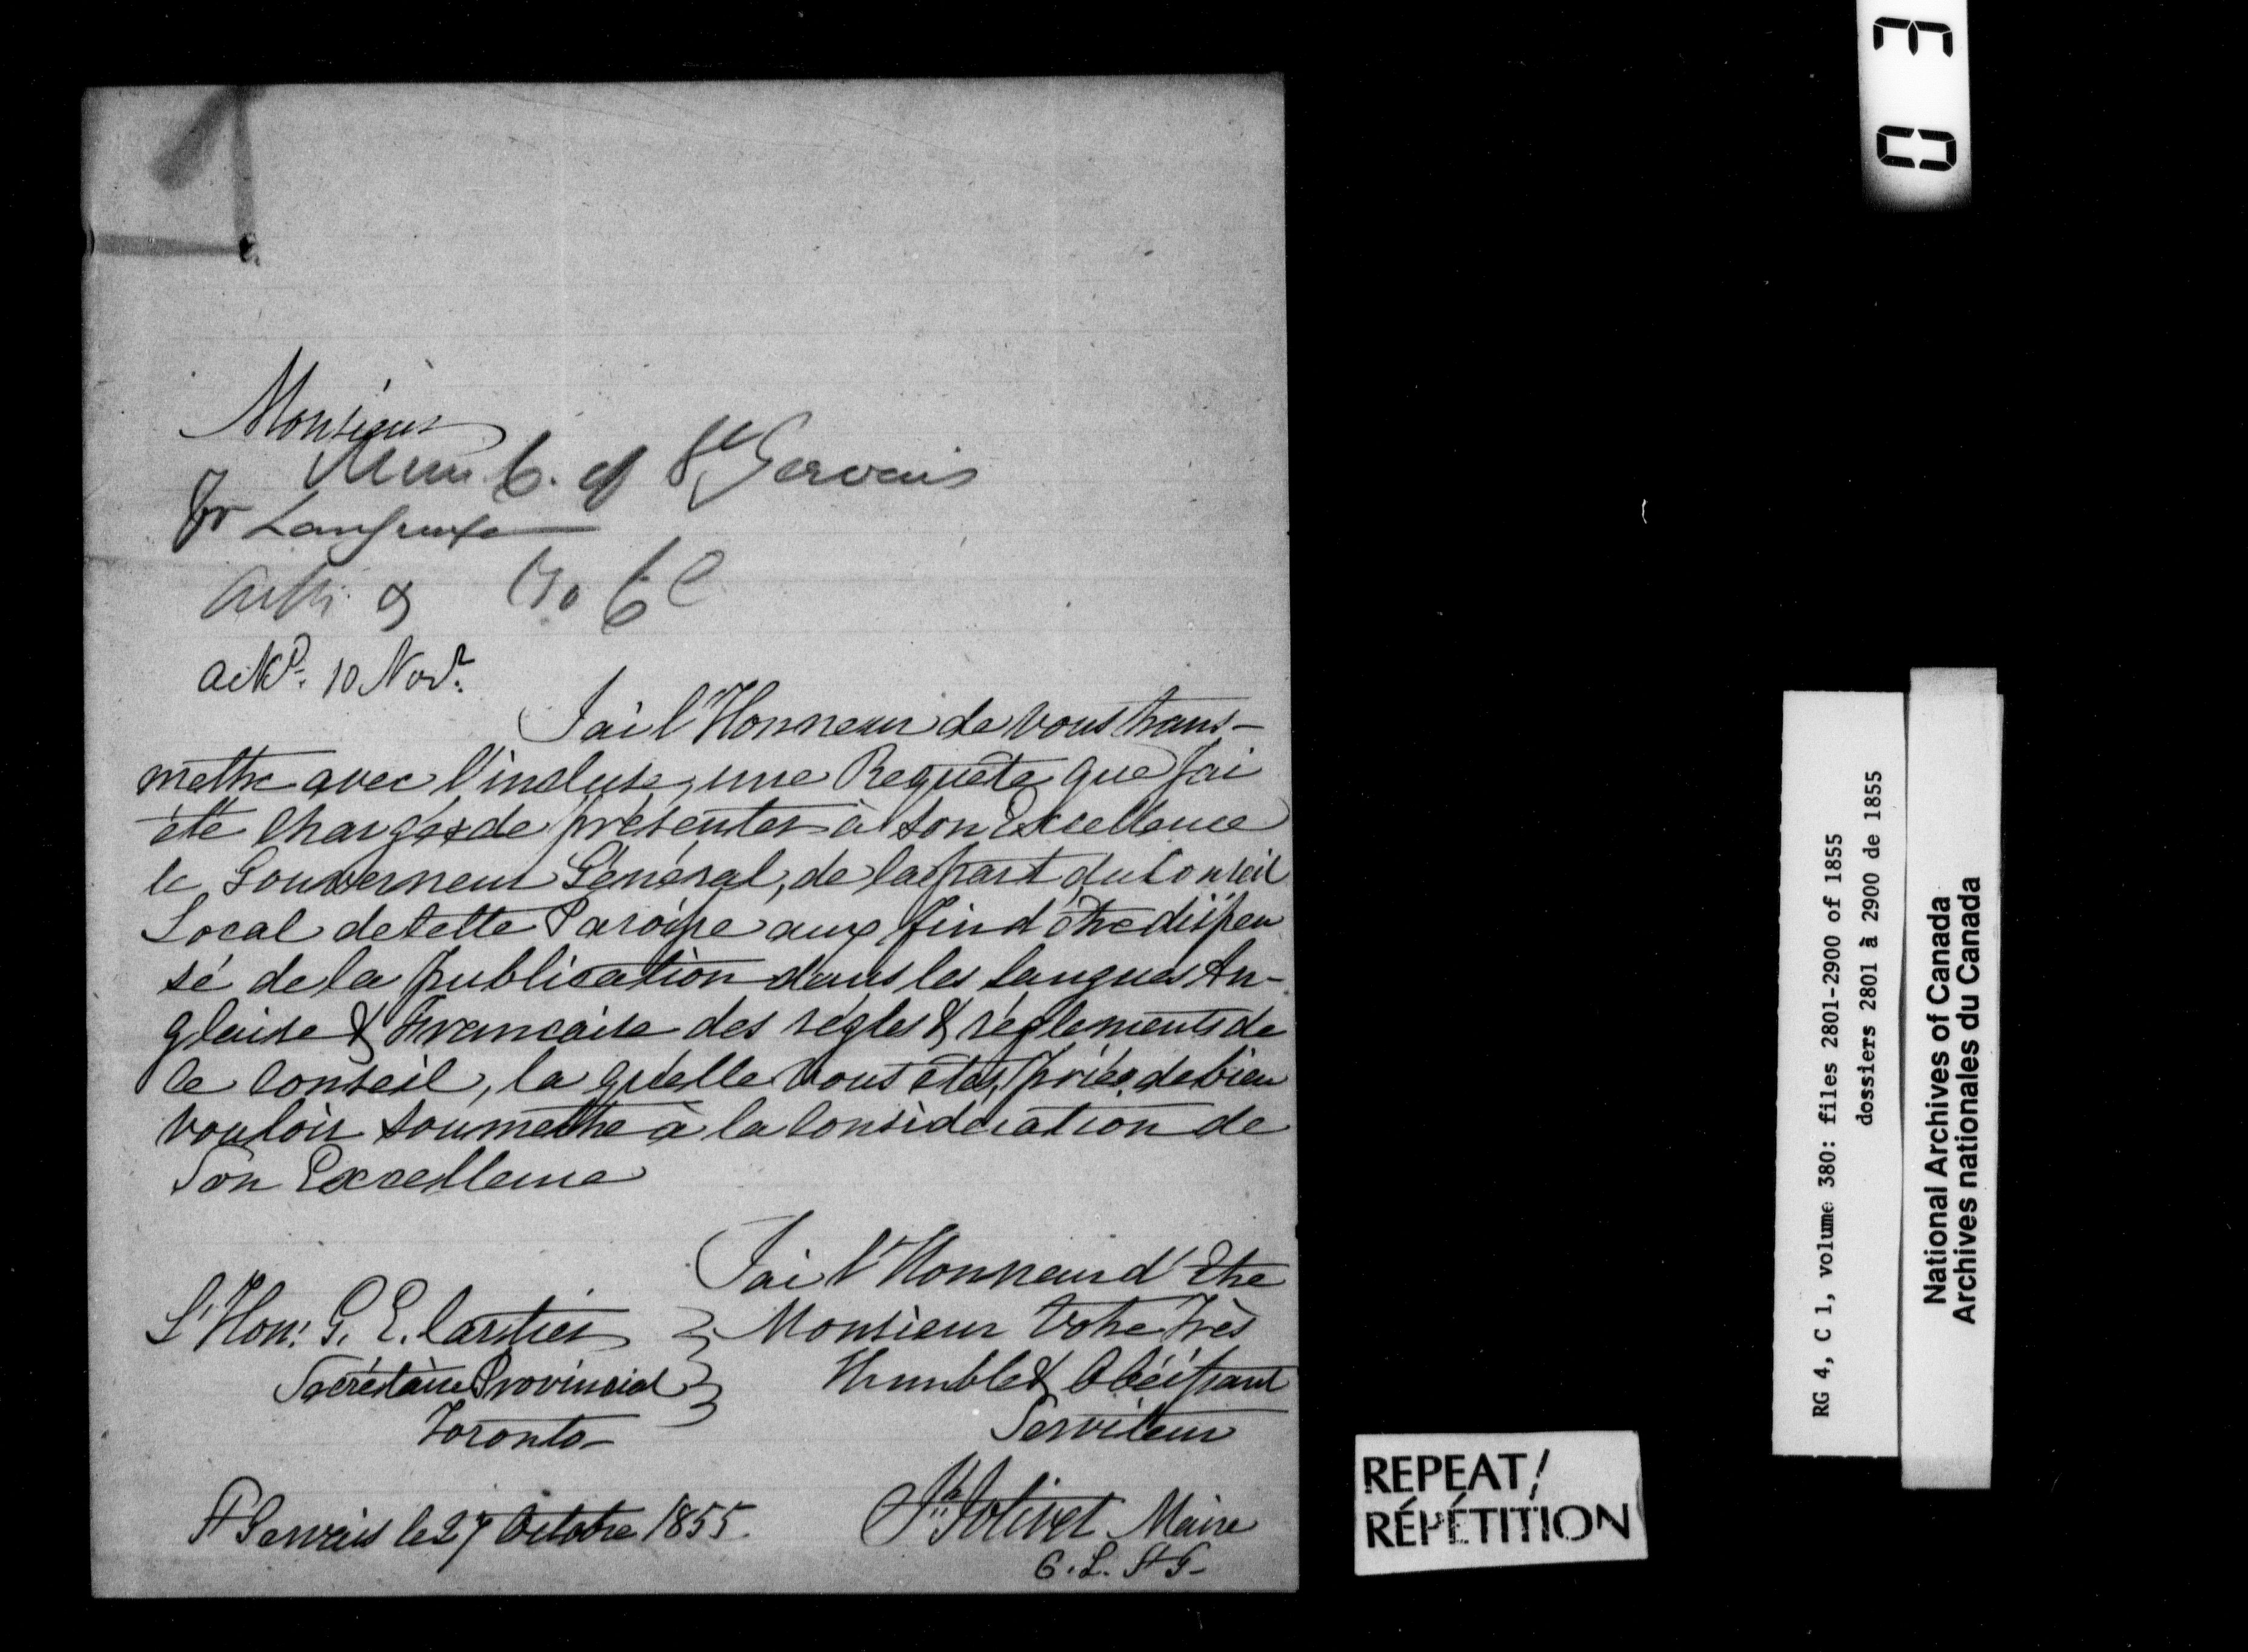 Monsieur
Mun C. of St Gervais
for Language
Ackd. 10 Novr.
J'ai l'Honneur de vous trans-
mettre avec l'incluse, une Requête que J'ai
été chargé de présenter à Son Excellence
le Gouverneur Général, de la part du Conseil
Local de cette Paroisse aux fin d'être dispen
sé de la publication dans les langues An-
glaise & Francaise des régles & réglements de
ce Conseil, la quélle vous êtes prié de bien
vouloir soumettre à la Considération de
Son Excellence
J'ai l'Honneur d'Etre
Monsieur Votre Très
Humble & Obéissant
Serviteur
L'Hon: G. E. Cartier
Secrétaire Provincial
Toronto-
St Gervais le 27 Octobre 1855.
Jolivet Maire
C. L. St G-
REPEAT/
RÉPÉTITION
03
RG 4, C 1, volume 380: files 2801-2900 of 1855
dossiers 2801 à 2900 de 1855
National Archives of Canada
Archives nationales du Canada